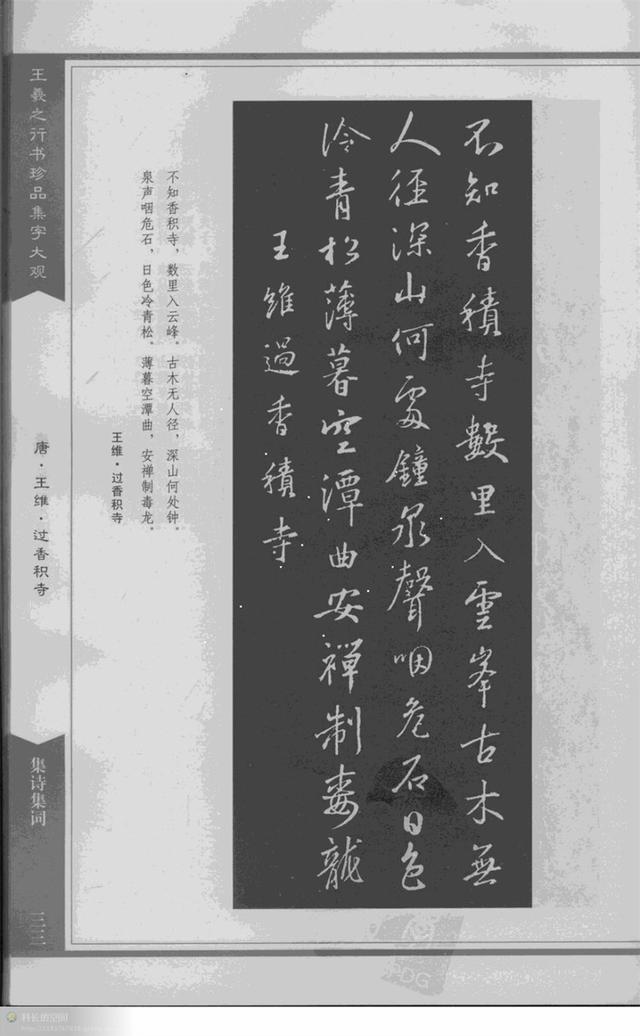 不知香積寺數里入雲峯古木無
人徑深山何處鐘泉聲咽危石日色
冷青松薄暮空潭曲安禪制毒龍
王維過香積寺
不知香积寺，数里入云峰。古木无人径，深山何处钟。
泉声咽危石，日色冷青松。薄暮空潭曲，安禅制毒龙。
王维·过香积寺
王羲之行书珍品集字大观
唐·王维·过香积寺
集诗集词
PDG
科长的空间